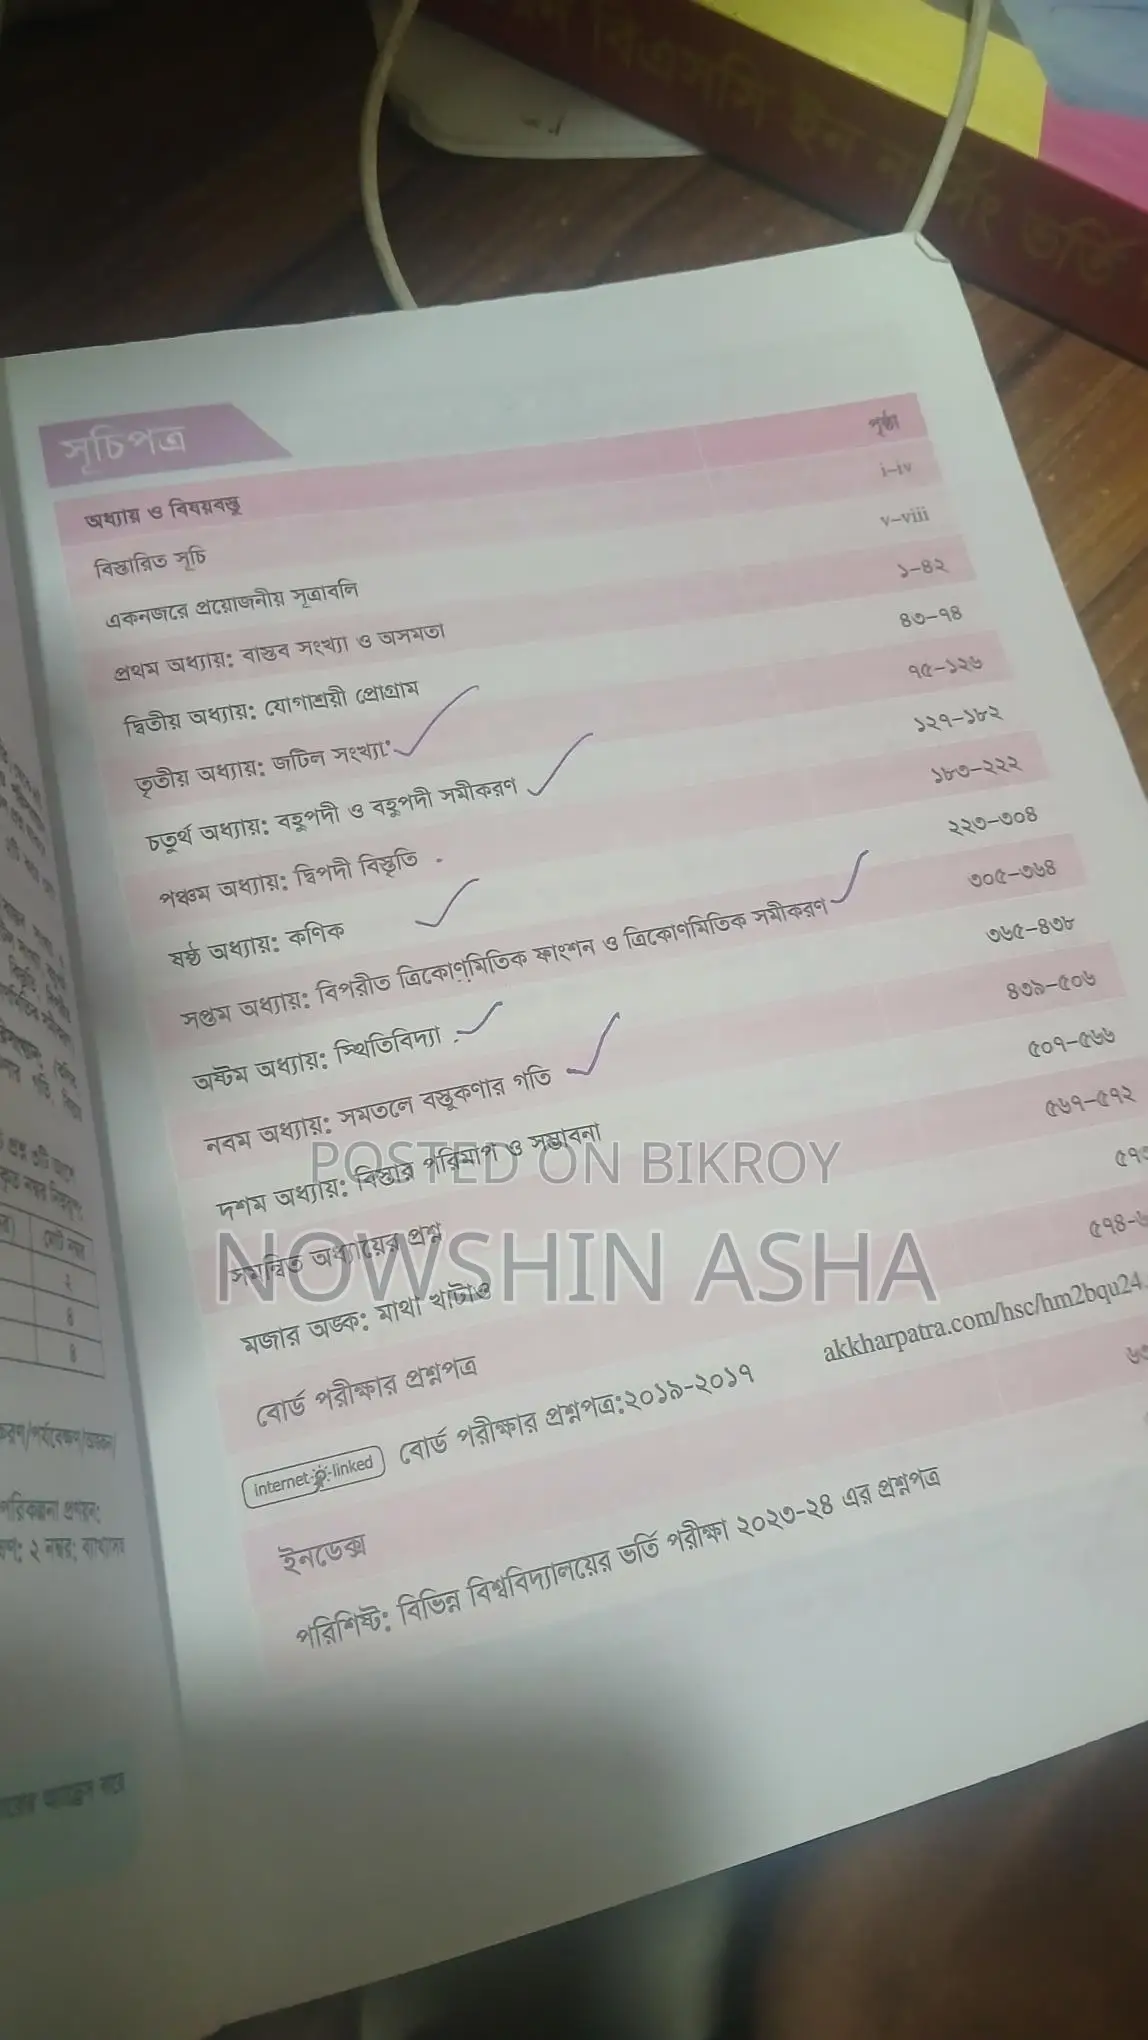 বিএসসি ইন নার্সিং ভর্তি
সূচিপত্র
অধ্যায় ও বিষয়বস্তু পৃষ্ঠা
বিস্তারিত সূচি i–iv
একনজরে প্রয়োজনীয় সূত্রাবলি v–viii
প্রথম অধ্যায়: বাস্তব সংখ্যা ও অসমতা ১–৪২
দ্বিতীয় অধ্যায়: যোগাশ্রয়ী প্রোগ্রাম ৪৩–৭৪
তৃতীয় অধ্যায়: জটিল সংখ্যা ৭৫–১২৬
চতুর্থ অধ্যায়: বহুপদী ও বহুপদী সমীকরণ ১২৭–১৮২
পঞ্চম অধ্যায়: দ্বিপদী বিস্তৃতি ১৮৩–২২২
ষষ্ঠ অধ্যায়: কণিক ২২৩–৩০৪
সপ্তম অধ্যায়: বিপরীত ত্রিকোণমিতিক ফাংশন ও ত্রিকোণমিতিক সমীকরণ ৩০৫–৩৬৪
অষ্টম অধ্যায়: স্থিতিবিদ্যা ৩৬৫–৪৩৮
নবম অধ্যায়: সমতলে বস্তুকণার গতি ৪৩৯–৫০৬
দশম অধ্যায়: বিস্তার পরিমাপ ও সম্ভাবনা ৫০৭–৫৬৬
সমন্বিত অধ্যায়ের প্রশ্ন ৫৬৭–৫৭২
মজার অঙ্ক: মাথা খাটাও
বোর্ড পরীক্ষার প্রশ্নপত্র
internet-linked বোর্ড পরীক্ষার প্রশ্নপত্র:২০১৯-২০১৭ akkharpatra.com/hsc/hm2bqu24
ইনডেক্স
পরিশিষ্ট: বিভিন্ন বিশ্ববিদ্যালয়ের ভর্তি পরীক্ষা ২০২৩-২৪ এর প্রশ্নপত্র
POSTED ON BIKROY
NOWSHIN ASHA